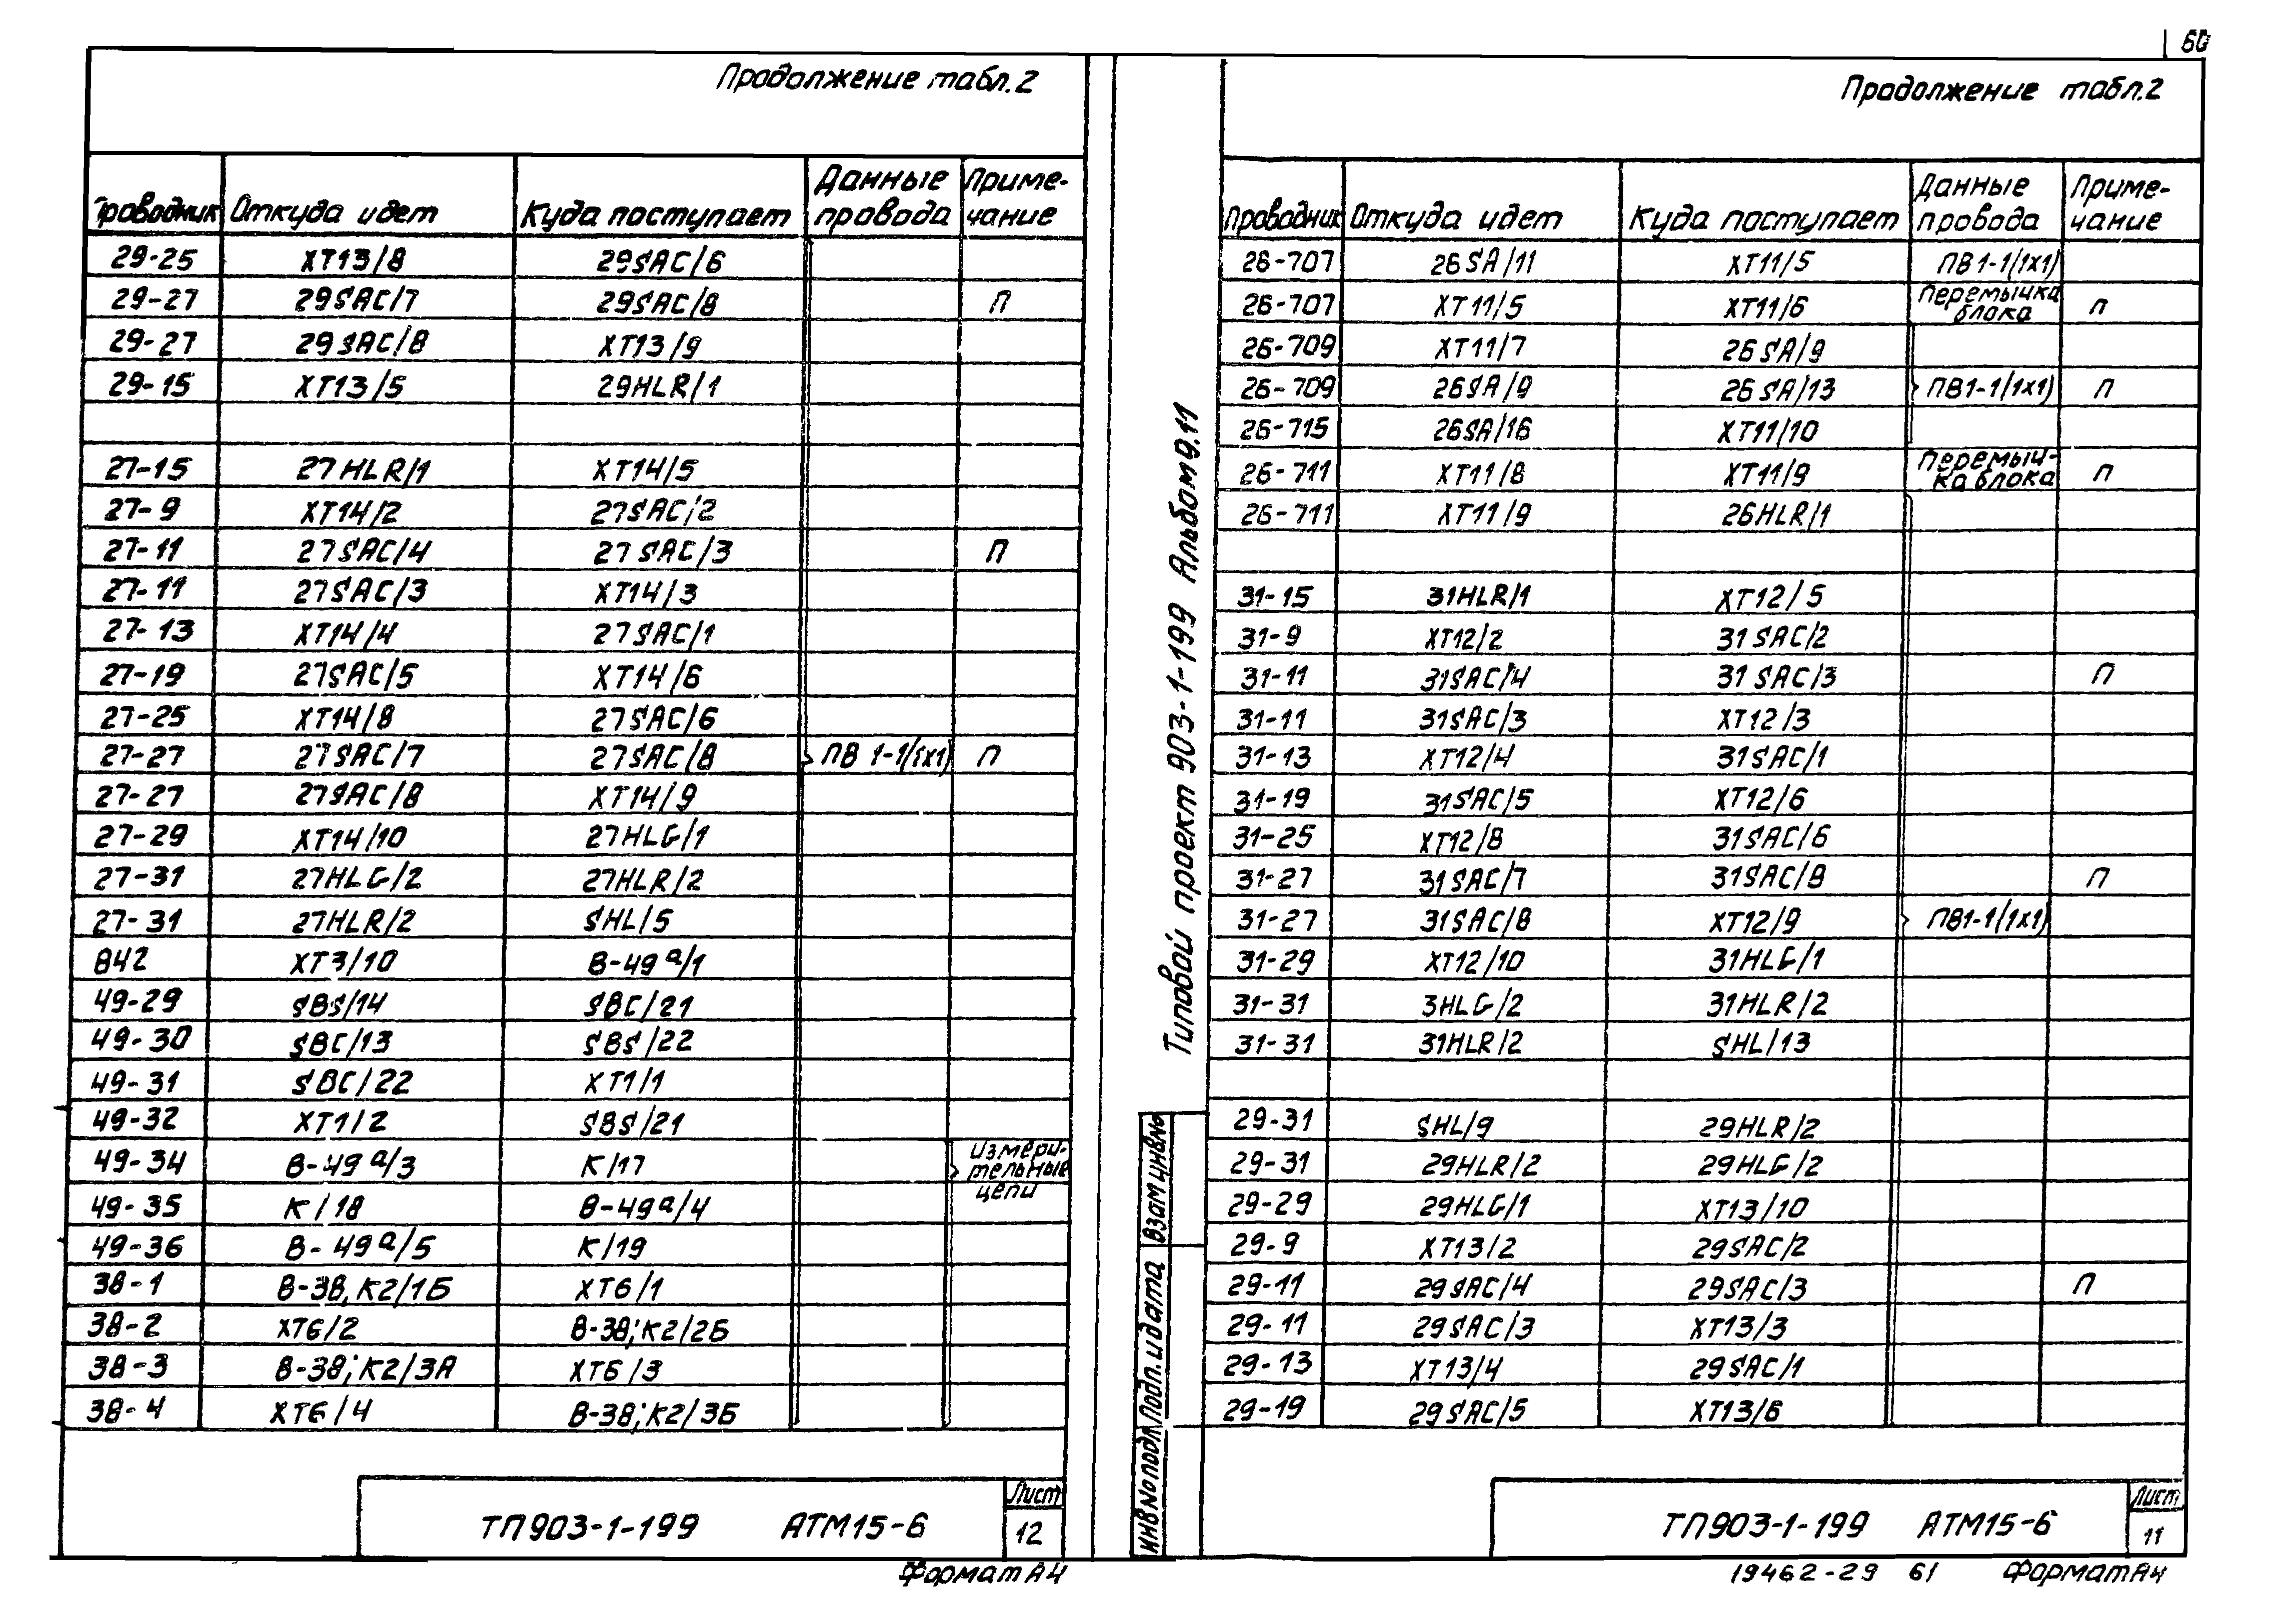 60
Продолжение табл.2
Проводник Откуда идет Куда поступает Данные провода Приме-чание
29-25 ХТ13/8 29SAC/6
29-27 29SAC/7 29SAC/8 П
29-27 29SAC/8 ХТ13/9
29-15 ХТ13/5 29HLR/1
27-15 27HLR/1 ХТ14/5
27-9 ХТ14/2 27SAC/2
27-11 27SAC/4 27SAC/3 П
27-11 27SAC/3 ХТ14/3
27-13 ХТ14/4 27SAC/1
27-19 27SAC/5 ХТ14/6
27-25 ХТ14/8 27SAC/6
27-27 27SAC/7 27SAC/8 ПВ 1-1/(1х1) П
27-27 27SAC/8 ХТ14/9
27-29 ХТ14/10 27HLG/1
27-31 27HLG/2 27HLR/2
27-31 27HLR/2 SHL/5
842 ХТ3/10 В-49а/1
49-29 SBS/14 SBC/21
49-30 SBC/13 SBS/22
49-31 SBC/22 ХТ1/1
49-32 ХТ1/2 SBS/21
49-34 В-49а/3 К/17 Измери-тельные цепи
49-35 К/18 В-49а/4
49-36 В-49а/5 К/19
38-1 В-38,К2/1Б ХТ6/1
38-2 ХТ6/2 В-38;К2/2Б
38-3 В-38;К2/3А ХТ6/3
38-4 ХТ6/4 В-38;К2/3Б
ТП903-1-199 АТМ15-6 Лист 12
Формат А4
Продолжение табл.2
Проводник Откуда идет Куда поступает Данные провода Приме-чание
26-707 26SA/11 ХТ11/5 ПВ1-1/(1х1)
26-707 ХТ11/5 ХТ11/6 Перемычка блока П
26-709 ХТ11/7 26SA/9
26-709 26SA/9 26SA/13 ПВ1-1/(1х1) П
26-715 26SA/16 ХТ11/10
26-711 ХТ11/8 ХТ11/9 Перемыч-ка блока П
26-711 ХТ11/9 26HLR/1
31-15 31HLR/1 ХТ12/5
31-9 ХТ12/2 31SAC/2
31-11 31SAC/4 31SAC/3 П
31-11 31SAC/3 ХТ12/3
31-13 ХТ12/4 31SAC/1
31-19 31SAC/5 ХТ12/6
31-25 ХТ12/8 31SAC/6
31-27 31SAC/7 31SAC/8 П
31-27 31SAC/8 ХТ12/9 ПВ1-1/(1х1)
31-29 ХТ12/10 31HLG/1
31-31 3HLG/2 31HLR/2
31-31 31HLR/2 SHL/13
29-31 SHL/9 29HLR/2
29-31 29HLR/2 29HLG/2
29-29 29HLG/1 ХТ13/10
29-9 ХТ13/2 29SAC/2
29-11 29SAC/4 29SAC/3 П
29-11 29SAC/3 ХТ13/3
29-13 ХТ13/4 29SAC/1
29-19 29SAC/5 ХТ13/6
Типовой проект 903-1-199 Альбом 9.11
Взам инв№
Подп. и дата
Инв № подл.
ТП903-1-199 АТМ15-6 Лист 11
19462-29 61 Формат А4